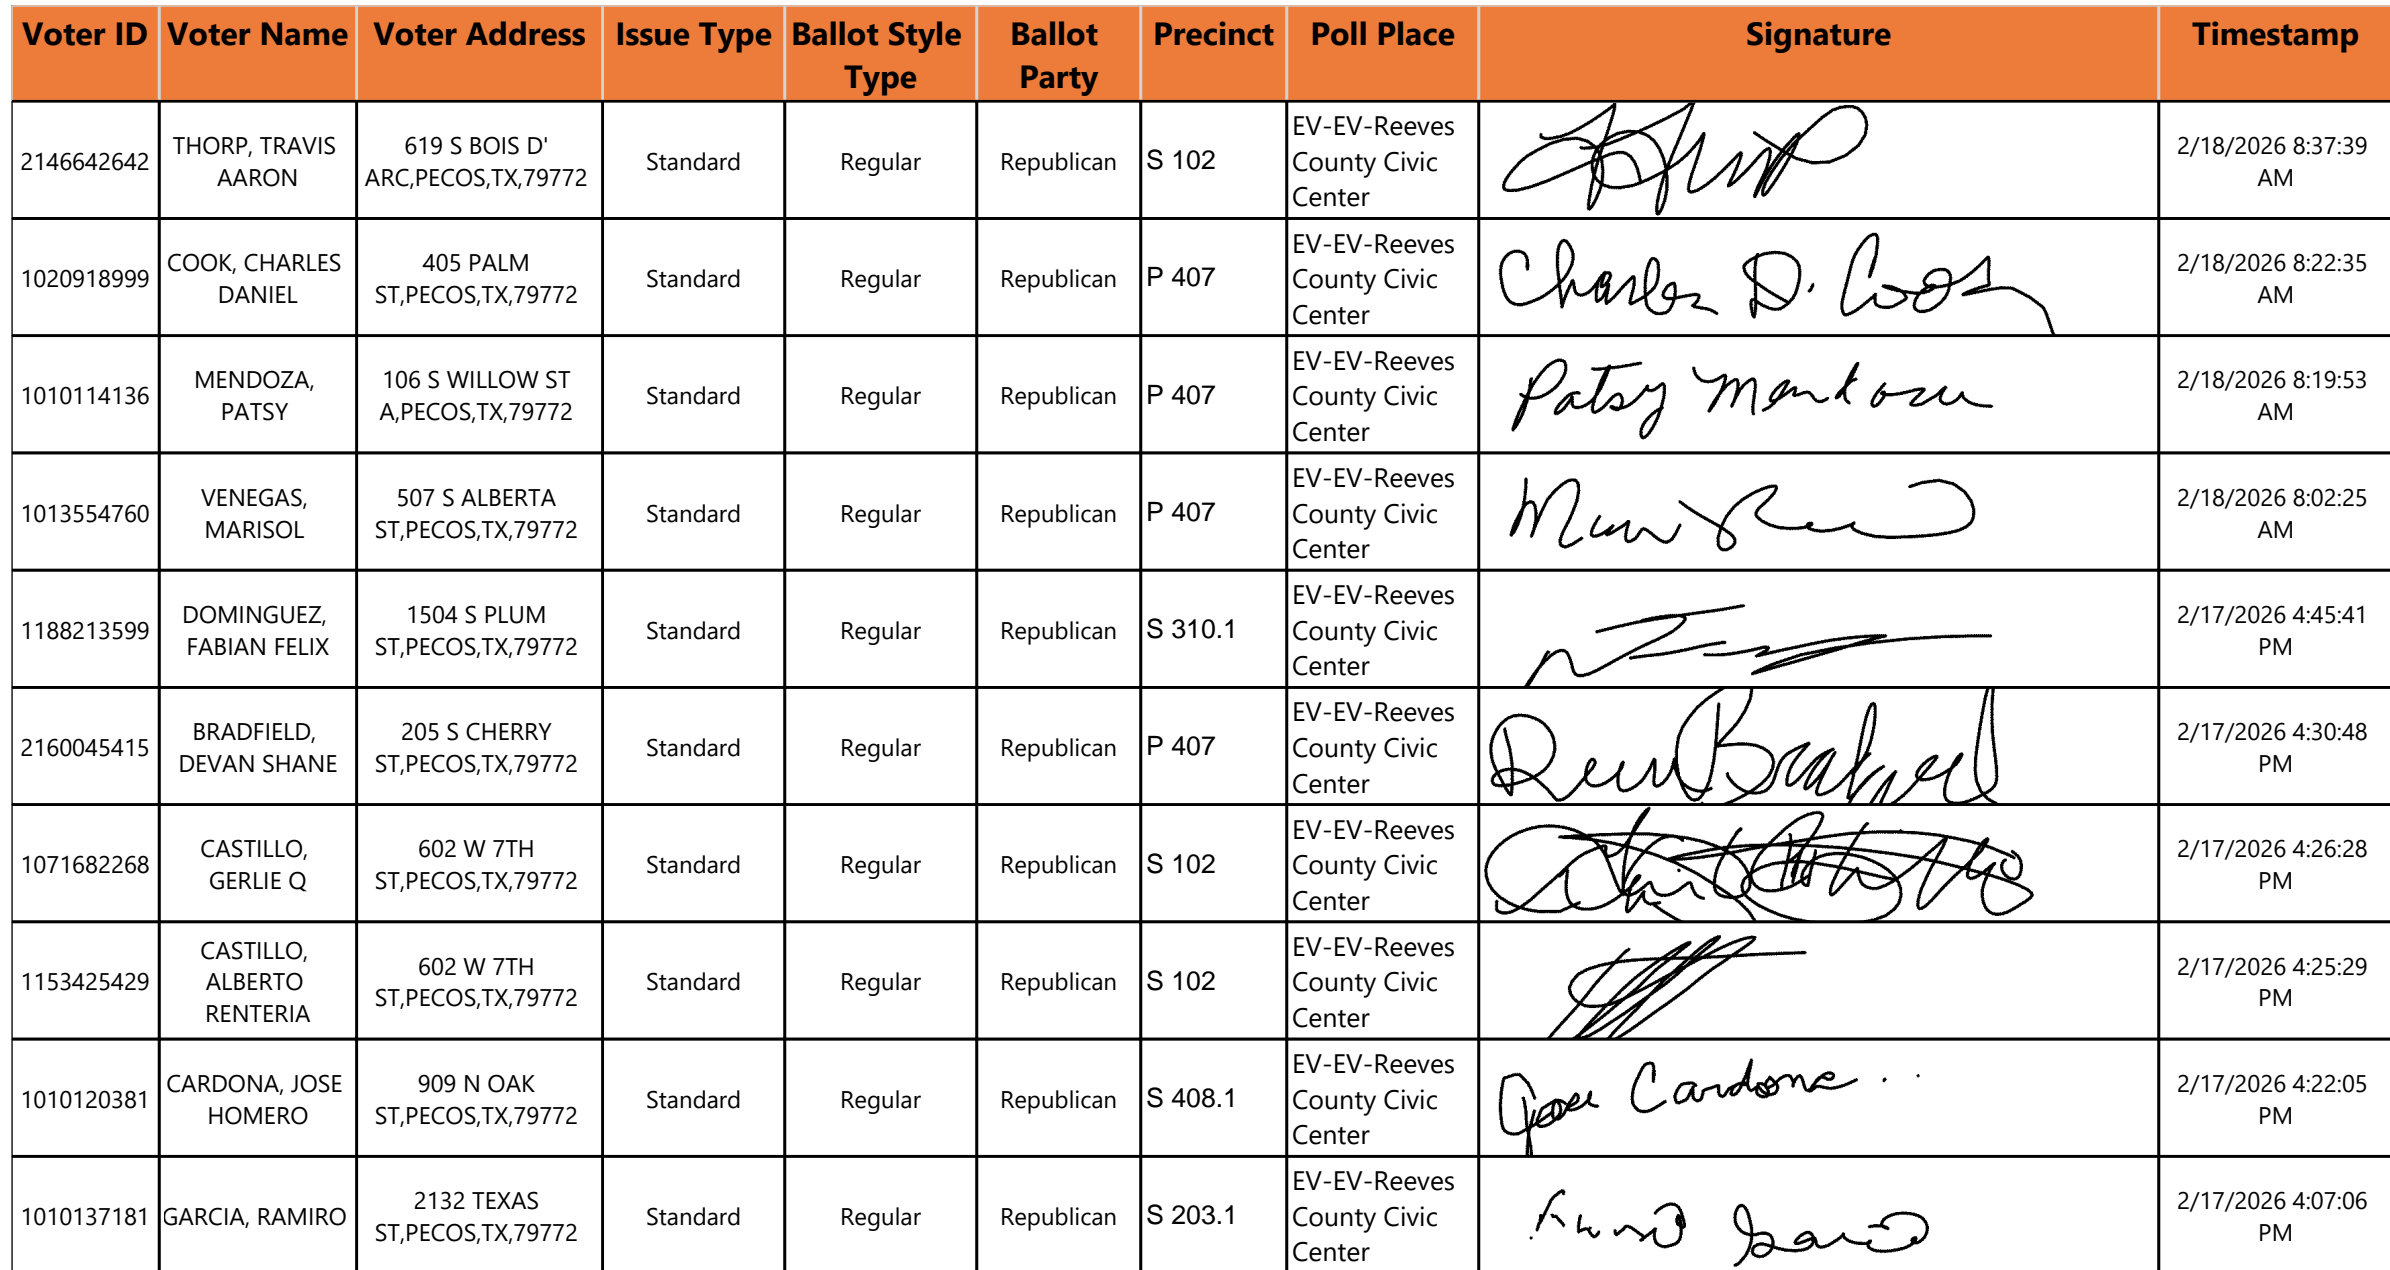 Voter ID Voter Name Voter Address Issue Type Ballot Style Type Ballot Party Precinct Poll Place Signature Timestamp
2146642642 THORP, TRAVIS AARON 619 S BOIS D' ARC,PECOS,TX,79772 Standard Regular Republican S 102 EV-EV-Reeves County Civic Center 2/18/2026 8:37:39 AM
1020918999 COOK, CHARLES DANIEL 405 PALM ST,PECOS,TX,79772 Standard Regular Republican P 407 EV-EV-Reeves County Civic Center Charles D. Cook 2/18/2026 8:22:35 AM
1010114136 MENDOZA, PATSY 106 S WILLOW ST A,PECOS,TX,79772 Standard Regular Republican P 407 EV-EV-Reeves County Civic Center Patsy Mendoza 2/18/2026 8:19:53 AM
1013554760 VENEGAS, MARISOL 507 S ALBERTA ST,PECOS,TX,79772 Standard Regular Republican P 407 EV-EV-Reeves County Civic Center 2/18/2026 8:02:25 AM
1188213599 DOMINGUEZ, FABIAN FELIX 1504 S PLUM ST,PECOS,TX,79772 Standard Regular Republican S 310.1 EV-EV-Reeves County Civic Center 2/17/2026 4:45:41 PM
2160045415 BRADFIELD, DEVAN SHANE 205 S CHERRY ST,PECOS,TX,79772 Standard Regular Republican P 407 EV-EV-Reeves County Civic Center 2/17/2026 4:30:48 PM
1071682268 CASTILLO, GERLIE Q 602 W 7TH ST,PECOS,TX,79772 Standard Regular Republican S 102 EV-EV-Reeves County Civic Center 2/17/2026 4:26:28 PM
1153425429 CASTILLO, ALBERTO RENTERIA 602 W 7TH ST,PECOS,TX,79772 Standard Regular Republican S 102 EV-EV-Reeves County Civic Center 2/17/2026 4:25:29 PM
1010120381 CARDONA, JOSE HOMERO 909 N OAK ST,PECOS,TX,79772 Standard Regular Republican S 408.1 EV-EV-Reeves County Civic Center Jose Cardona 2/17/2026 4:22:05 PM
1010137181 GARCIA, RAMIRO 2132 TEXAS ST,PECOS,TX,79772 Standard Regular Republican S 203.1 EV-EV-Reeves County Civic Center Garcia 2/17/2026 4:07:06 PM